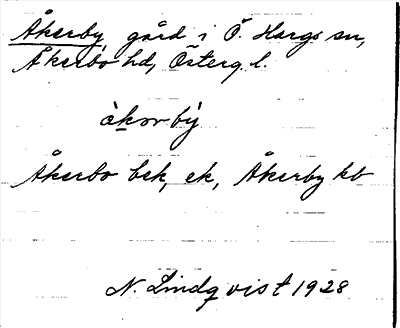 Åkerby gård i Ö. Hargs sn,
Åkerbo hd, Österg. l.
åkərbý
Åkerbo bek, ek, Åkerby kb
N. Lindqvist 1928